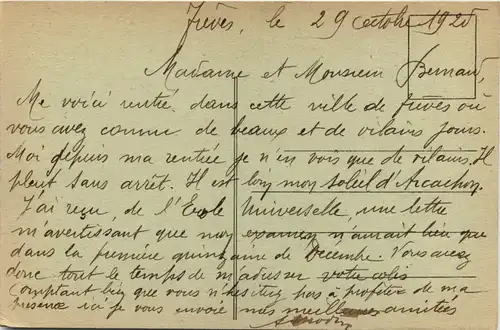 Trèves, le 29 octobre 1925
Madame et Monsieur Bernard,
Me voici rentré dans cette ville de Trèves où
vous avez connu de beaux et de vilains jours.
Moi depuis ma rentrée je n'en vois que de vilains. Il
pleut sans arrêt. Il est loin mon soleil d'Arcachon.
J'ai reçu, de l'Ecole Universelle, une lettre
m'avertissant que mon examen n'aurait lieu que
dans la première quinzaine de Décembre. Vous avez
donc tout le temps de m'adresser votre colis
Comptant bien que vous n'hésitez pas à profiter de ma
présence ici je vous envoie mes meilleures amitiés